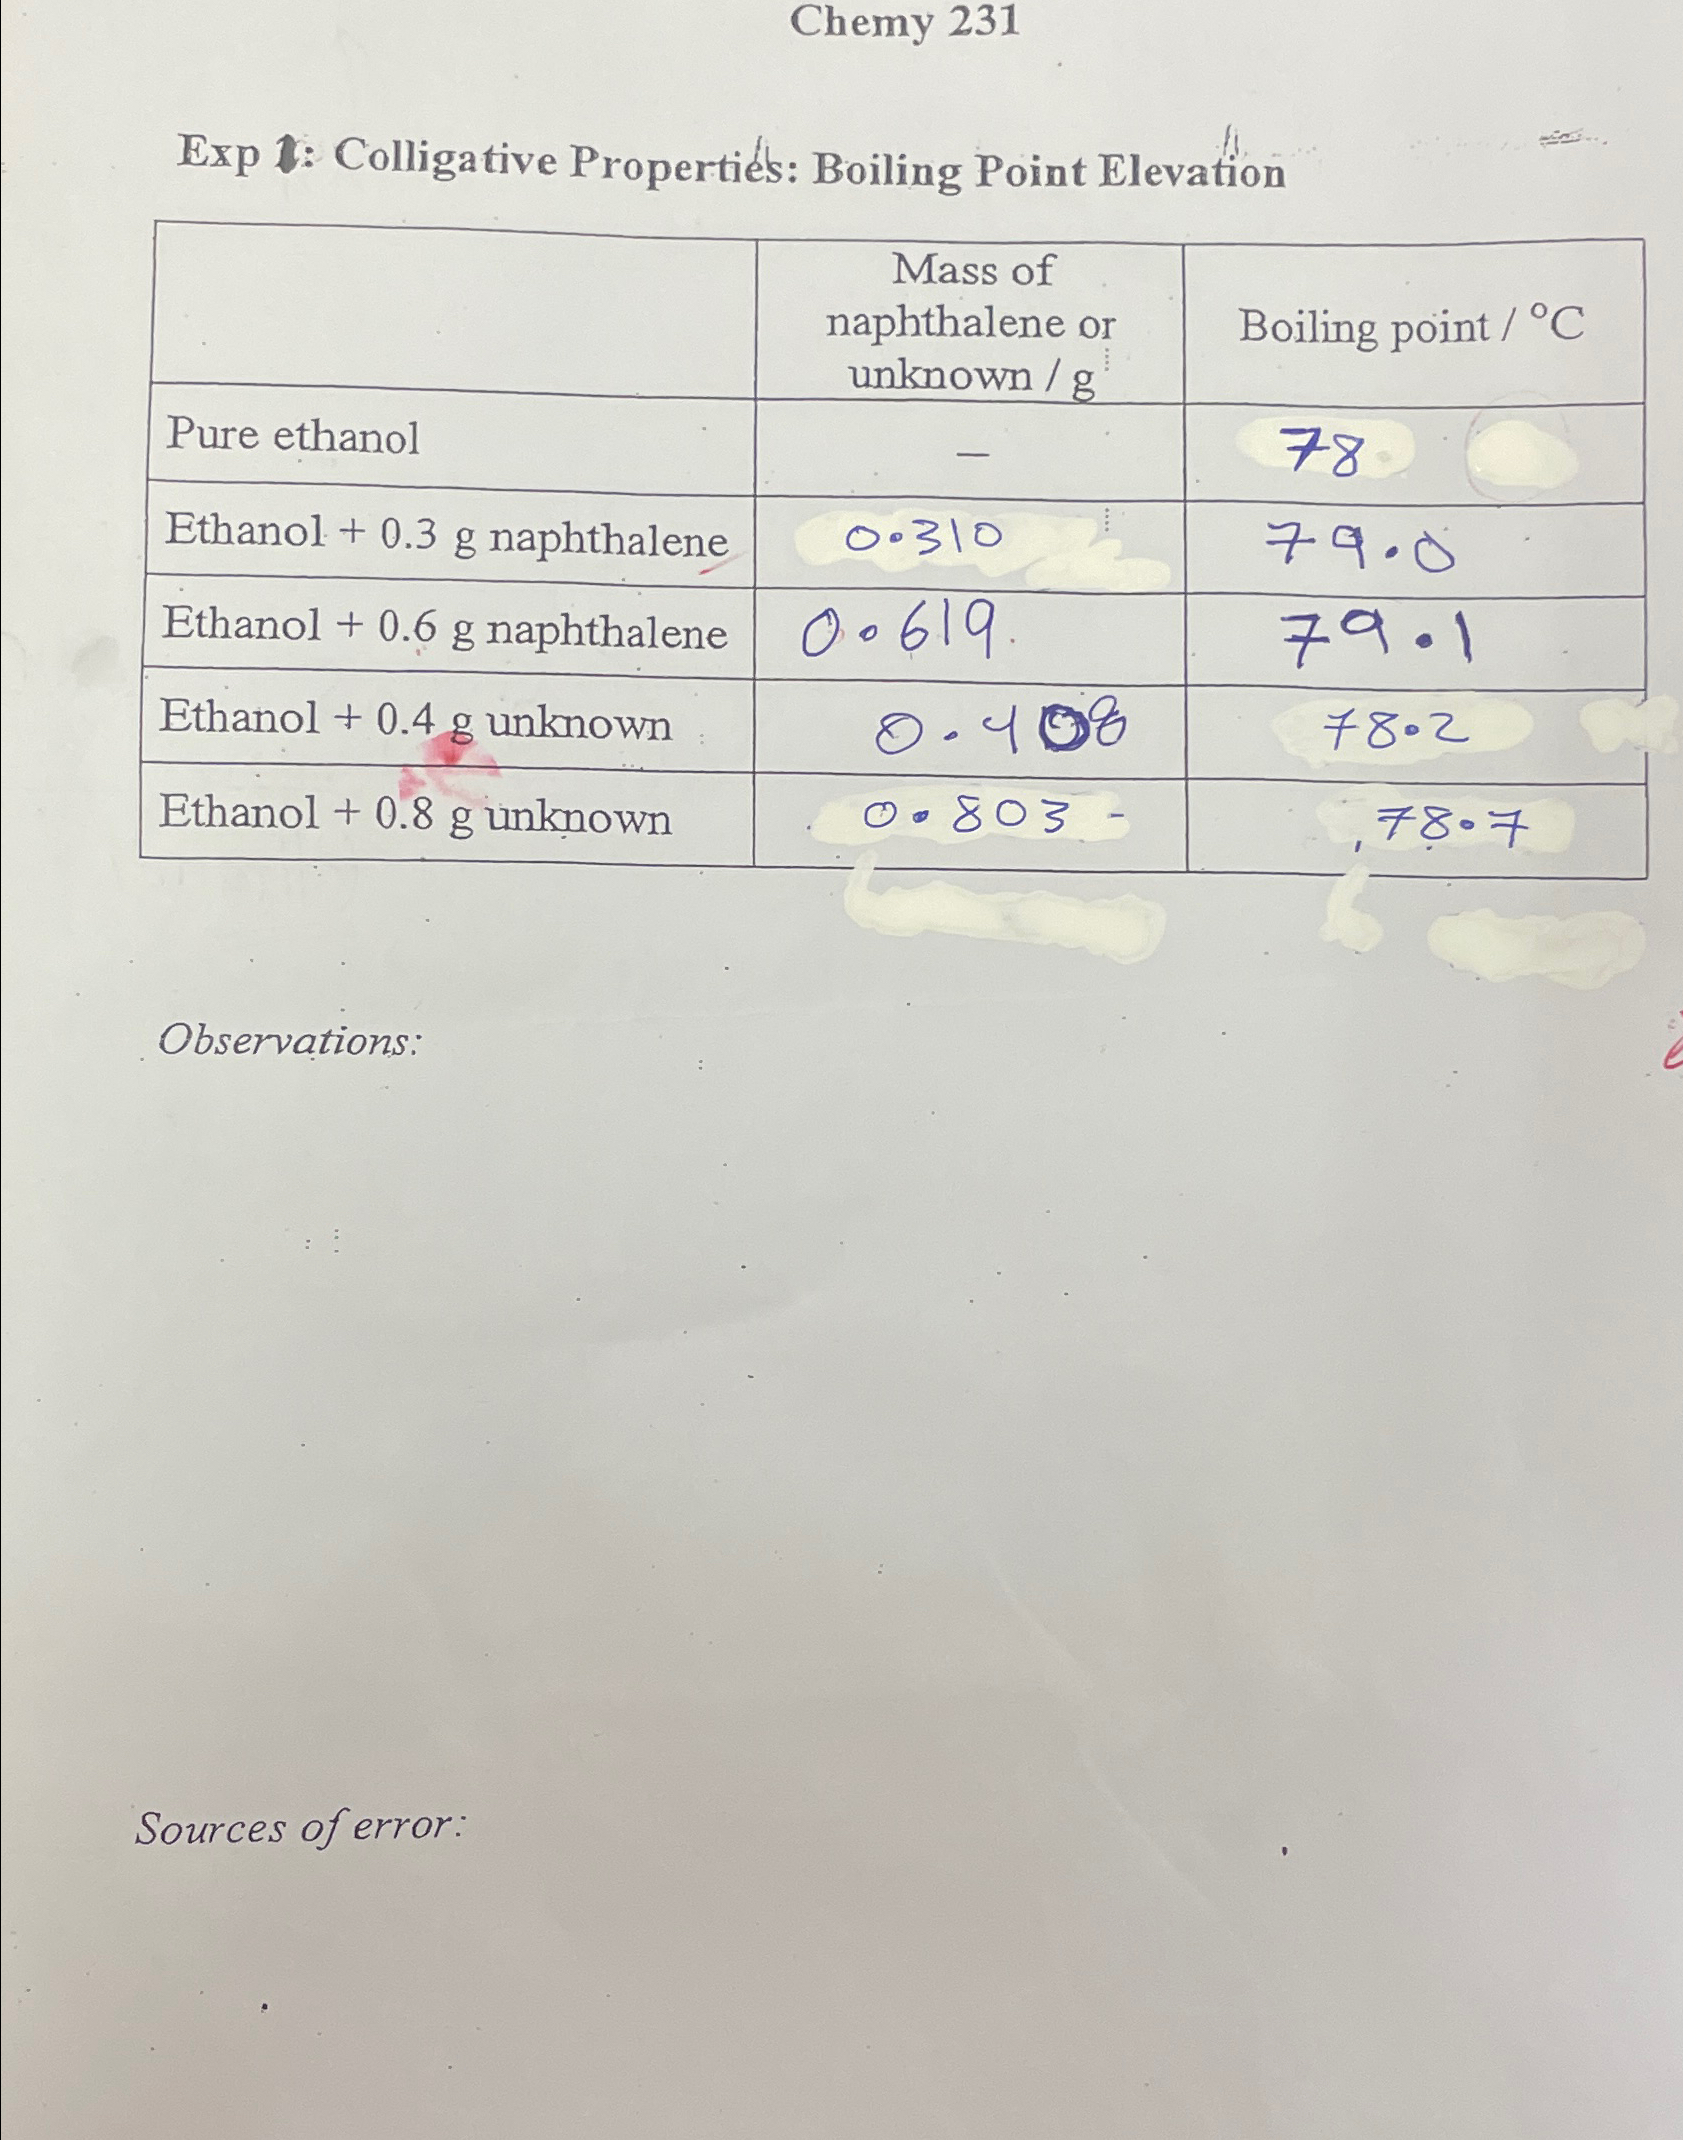 Chemy 231
Exp 1: Colligative Properties: Boiling Point Elevation
Mass of
naphthalene or
unknown / g
Boiling point / °C
Pure ethanol
–
78
Ethanol + 0.3 g naphthalene
0.310
79.0
Ethanol + 0.6 g naphthalene
0.619
79.1
Ethanol + 0.4 g unknown
0.408
78.2
Ethanol + 0.8 g unknown
0.803
78.7
Observations:
Sources of error: